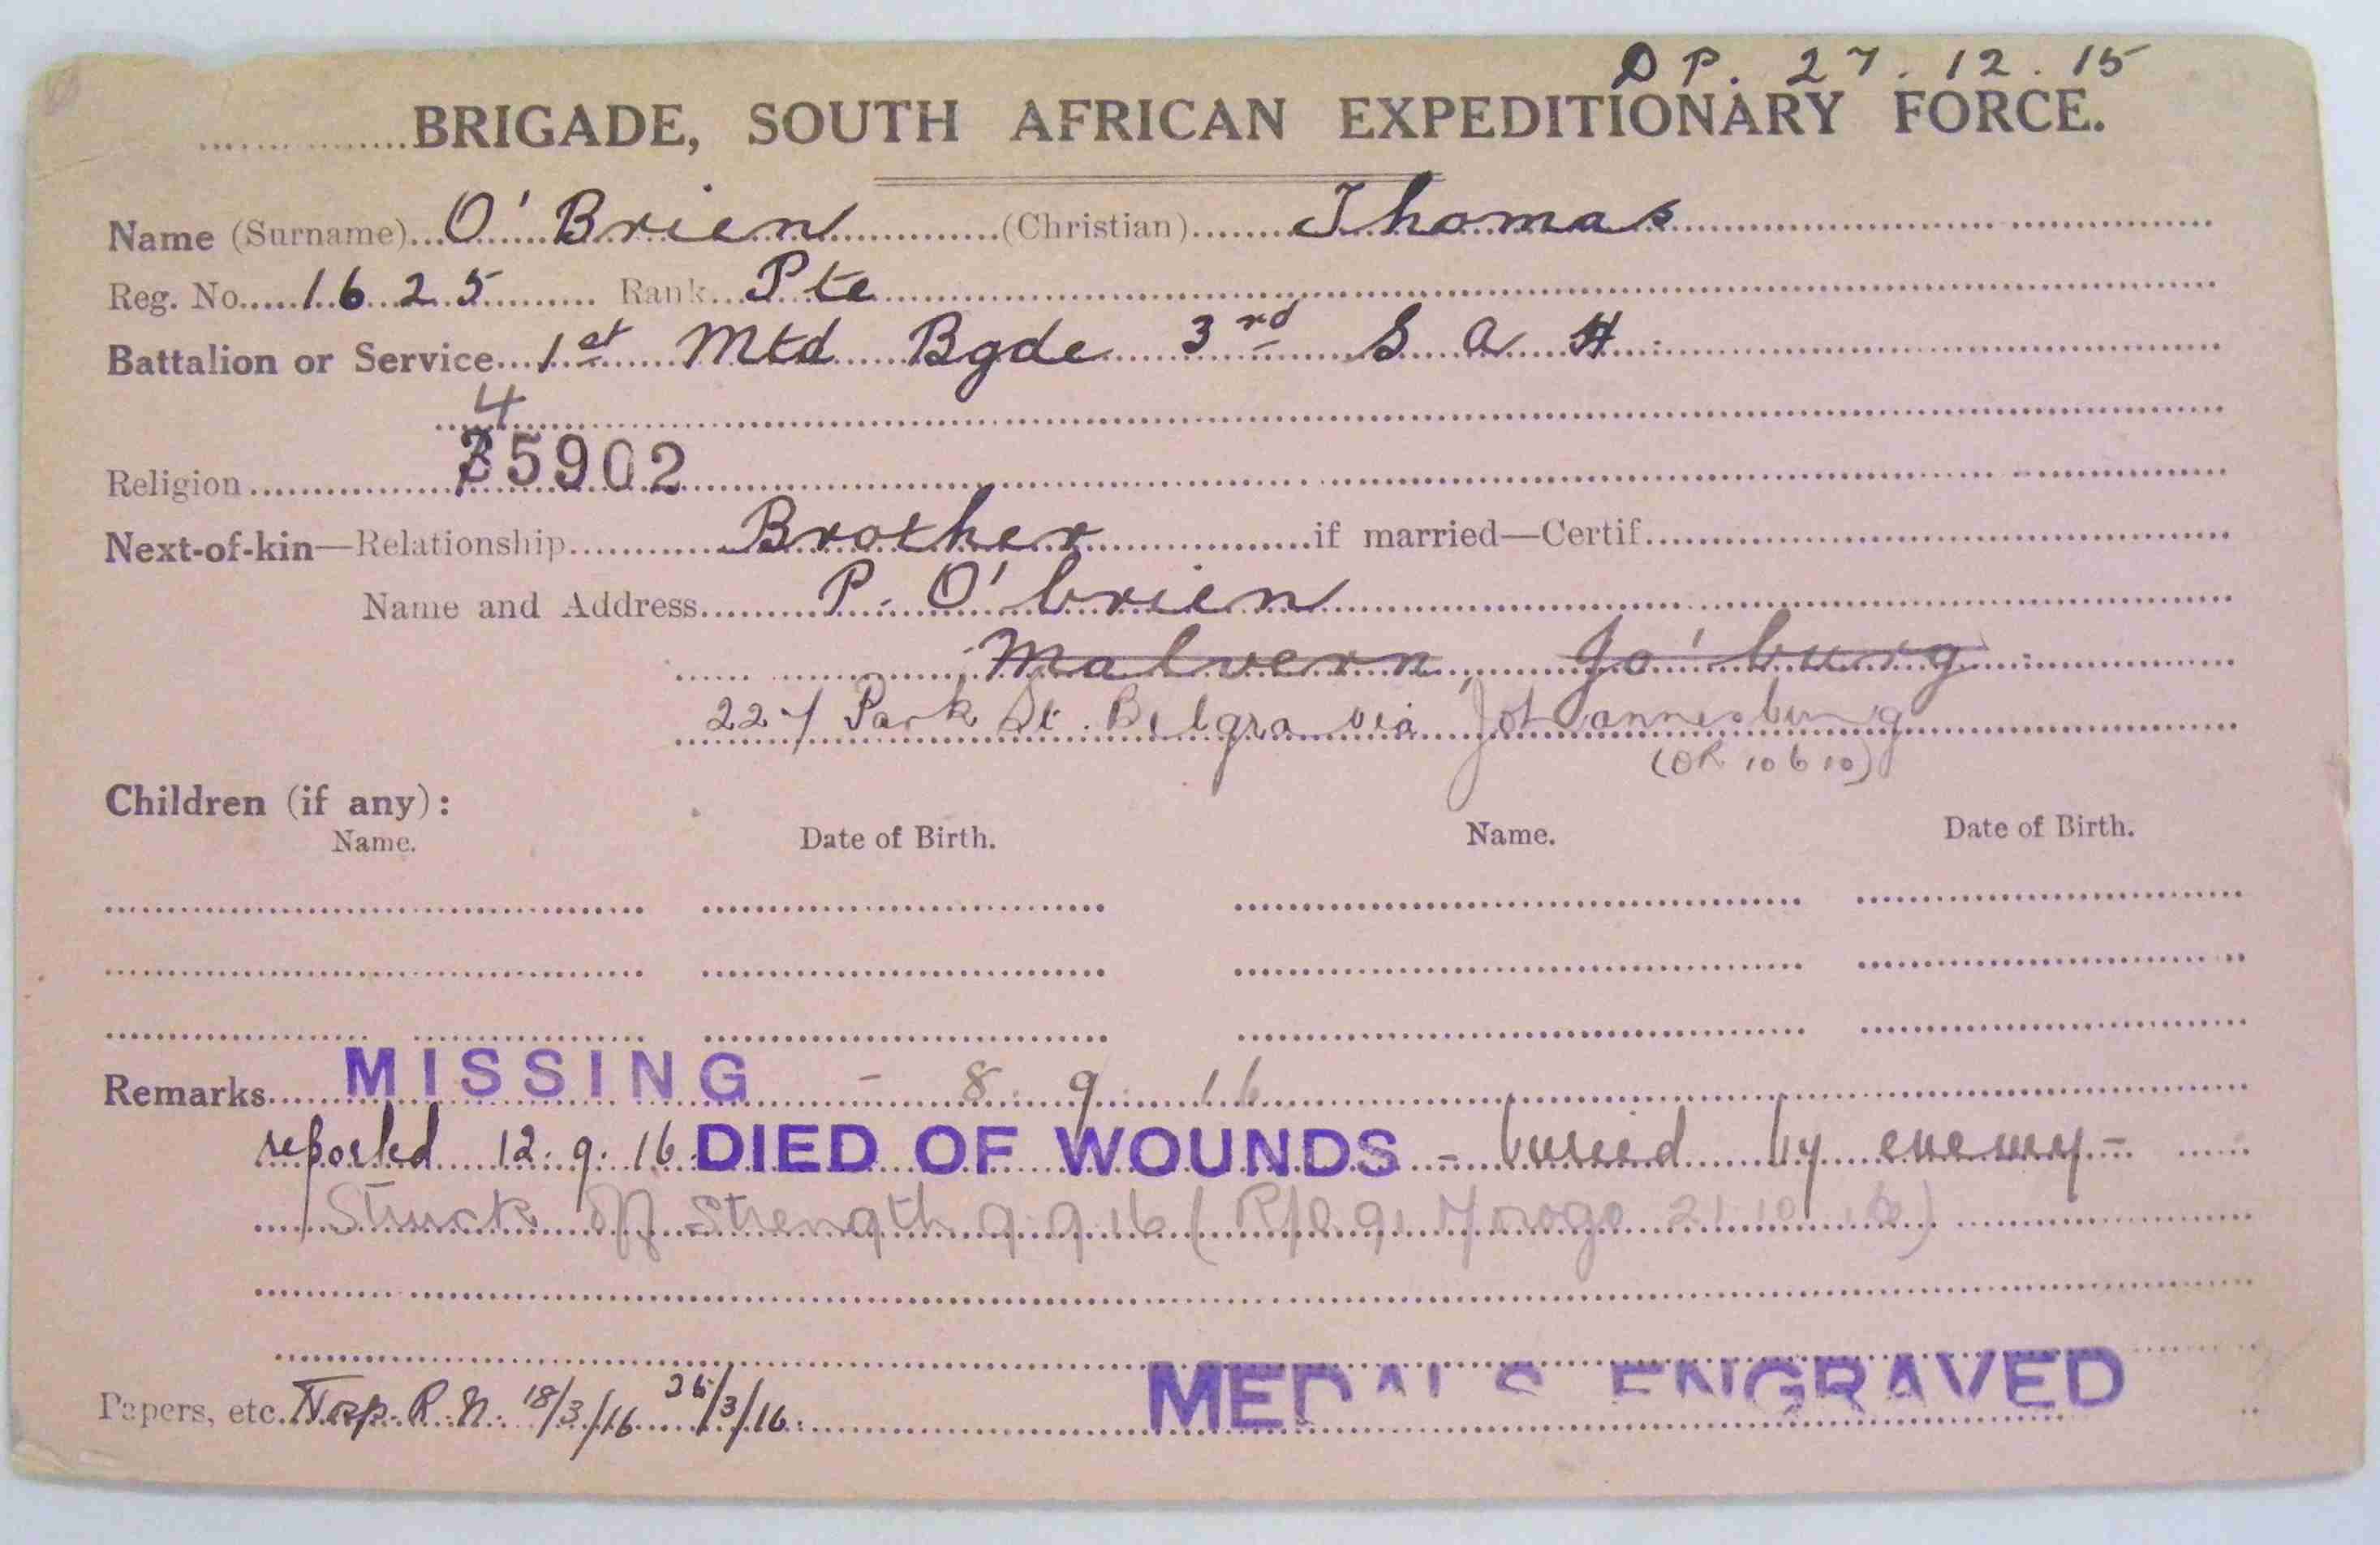 DP. 27.12.15
BRIGADE, SOUTH AFRICAN EXPEDITIONARY FORCE.
Name (Surname) O'Brien (Christian) Thomas
Reg. No. 1625 Rank Pte
Battalion or Service 1st Mtd Bgde 3rd S A H
4
35902
Religion
Next-of-kin—Relationship Brother if married—Certif.
Name and Address P. O'brien
Malvern, Jo'burg
227 Park St. Belgravia Johannesburg
(OR 10610)
Children (if any):
Name. Date of Birth. Name. Date of Birth.
Remarks MISSING - 8.9.16
reported 12.9.16 DIED OF WOUNDS - buried by enemy -
Struck off Strength 9.9.16 ( 21.10.16)
Papers, etc. R.N. 18/3/16 26/3/16.
MEDALS ENGRAVED